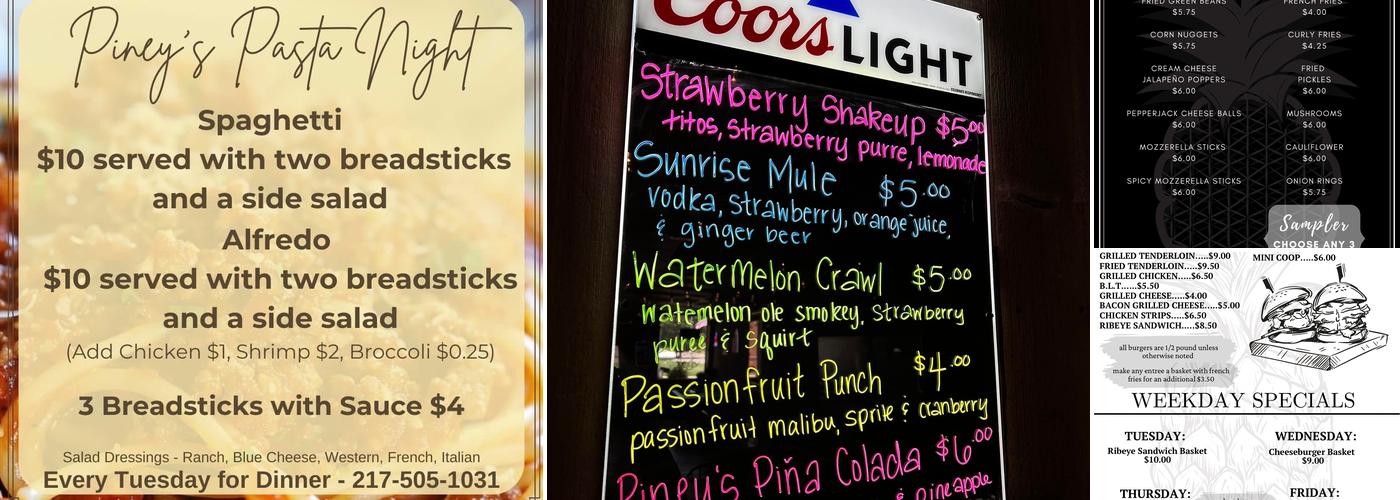 Piney's Pasta Night
Spaghetti
$10 served with two breadsticks
and a side salad
Alfredo
$10 served with two breadsticks
and a side salad
(Add Chicken $1, Shrimp $2, Broccoli $0.25)
3 Breadsticks with Sauce $4
Salad Dressings - Ranch, Blue Cheese, Western, French, Italian
Every Tuesday for Dinner - 217-505-1031
Coors LIGHT
Strawberry Shakeup $5.00
titos, strawberry purre, lemonade
Sunrise Mule $5.00
vodka, strawberry, orange juice,
& ginger beer
Watermelon Crawl $5.00
watemelon ole smokey, strawberry
puree & squirt
Passionfruit Punch $4.00
passionfruit malibu, sprite & cranberry
Piney's Piña Colada $6.00
& pineapple
FRIED GREEN BEANS
$5.75
CORN NUGGETS
$5.75
CREAM CHEESE
JALAPEÑO POPPERS
$6.00
PEPPERJACK CHEESE BALLS
$6.00
MOZZERELLA STICKS
$6.00
SPICY MOZZERELLA STICKS
$6.00
FRENCH FRIES
$4.00
CURLY FRIES
$4.25
FRIED
PICKLES
$6.00
MUSHROOMS
$6.00
CAULIFLOWER
$6.00
ONION RINGS
$5.75
Sampler
CHOOSE ANY 3
GRILLED TENDERLOIN.....$9.00
FRIED TENDERLOIN...$9.50
GRILLED CHICKEN...$6.50
B.L.T......$5.50
GRILLED CHEESE...$4.00
BACON GRILLED CHEESE....$5.00
CHICKEN STRIPS....$6.50
RIBEYE SANDWICH....$8.50
MINI COOP.....$6.00
all burgers are 1/2 pound unless
otherwise noted
make any entree a basket with french
fries for an additional $3.50
WEEKDAY SPECIALS
TUESDAY:
Ribeye Sandwich Basket
$10.00
WEDNESDAY:
Cheeseburger Basket
$9.00
THURSDAY:
FRIDAY: